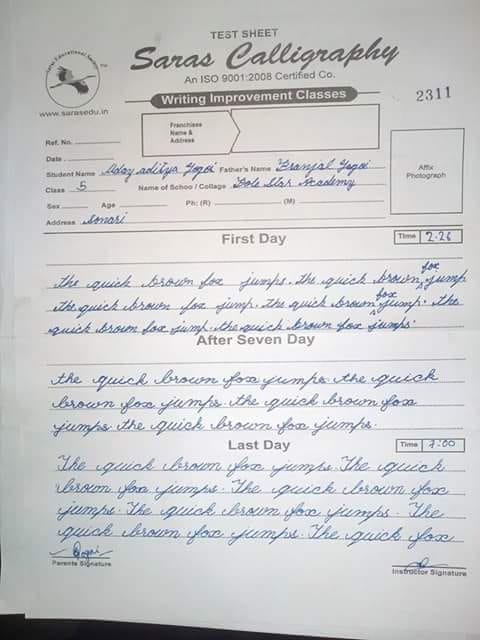 TEST SHEET
Saras Calligraphy
An ISO 9001:2008 Certified Co.
Writing Improvement Classes
2311
Saras Educational Society
www.sarasedu.in
Franchisee
Name &
Address
Ref. No.
Date
Student Name Uday aditya Gogoi Father's Name Pranjal Gogoi
Class 5 Name of School / Collage Pole Star Academy
Sex Age Ph: (R) (M)
Address Sonari
Affix
Photograph
First Day
Time 2.26
the quick brown fox jumps. the quick brown fox jump
the quick brown fox jump. the quick brown fox jump. the
quick brown fox jump. the quick brown fox jumps.
After Seven Day
the quick brown fox jumps. the quick
brown fox jumps. the quick brown fox
jumps the quick brown fox jumps.
Last Day
Time 7:00
The quick brown fox jumps. The quick
brown fox jumps. The quick brown fox
jumps. The quick brown fox jumps. The
quick brown fox jumps. The quick fox
Parents Signature
Instructor Signature